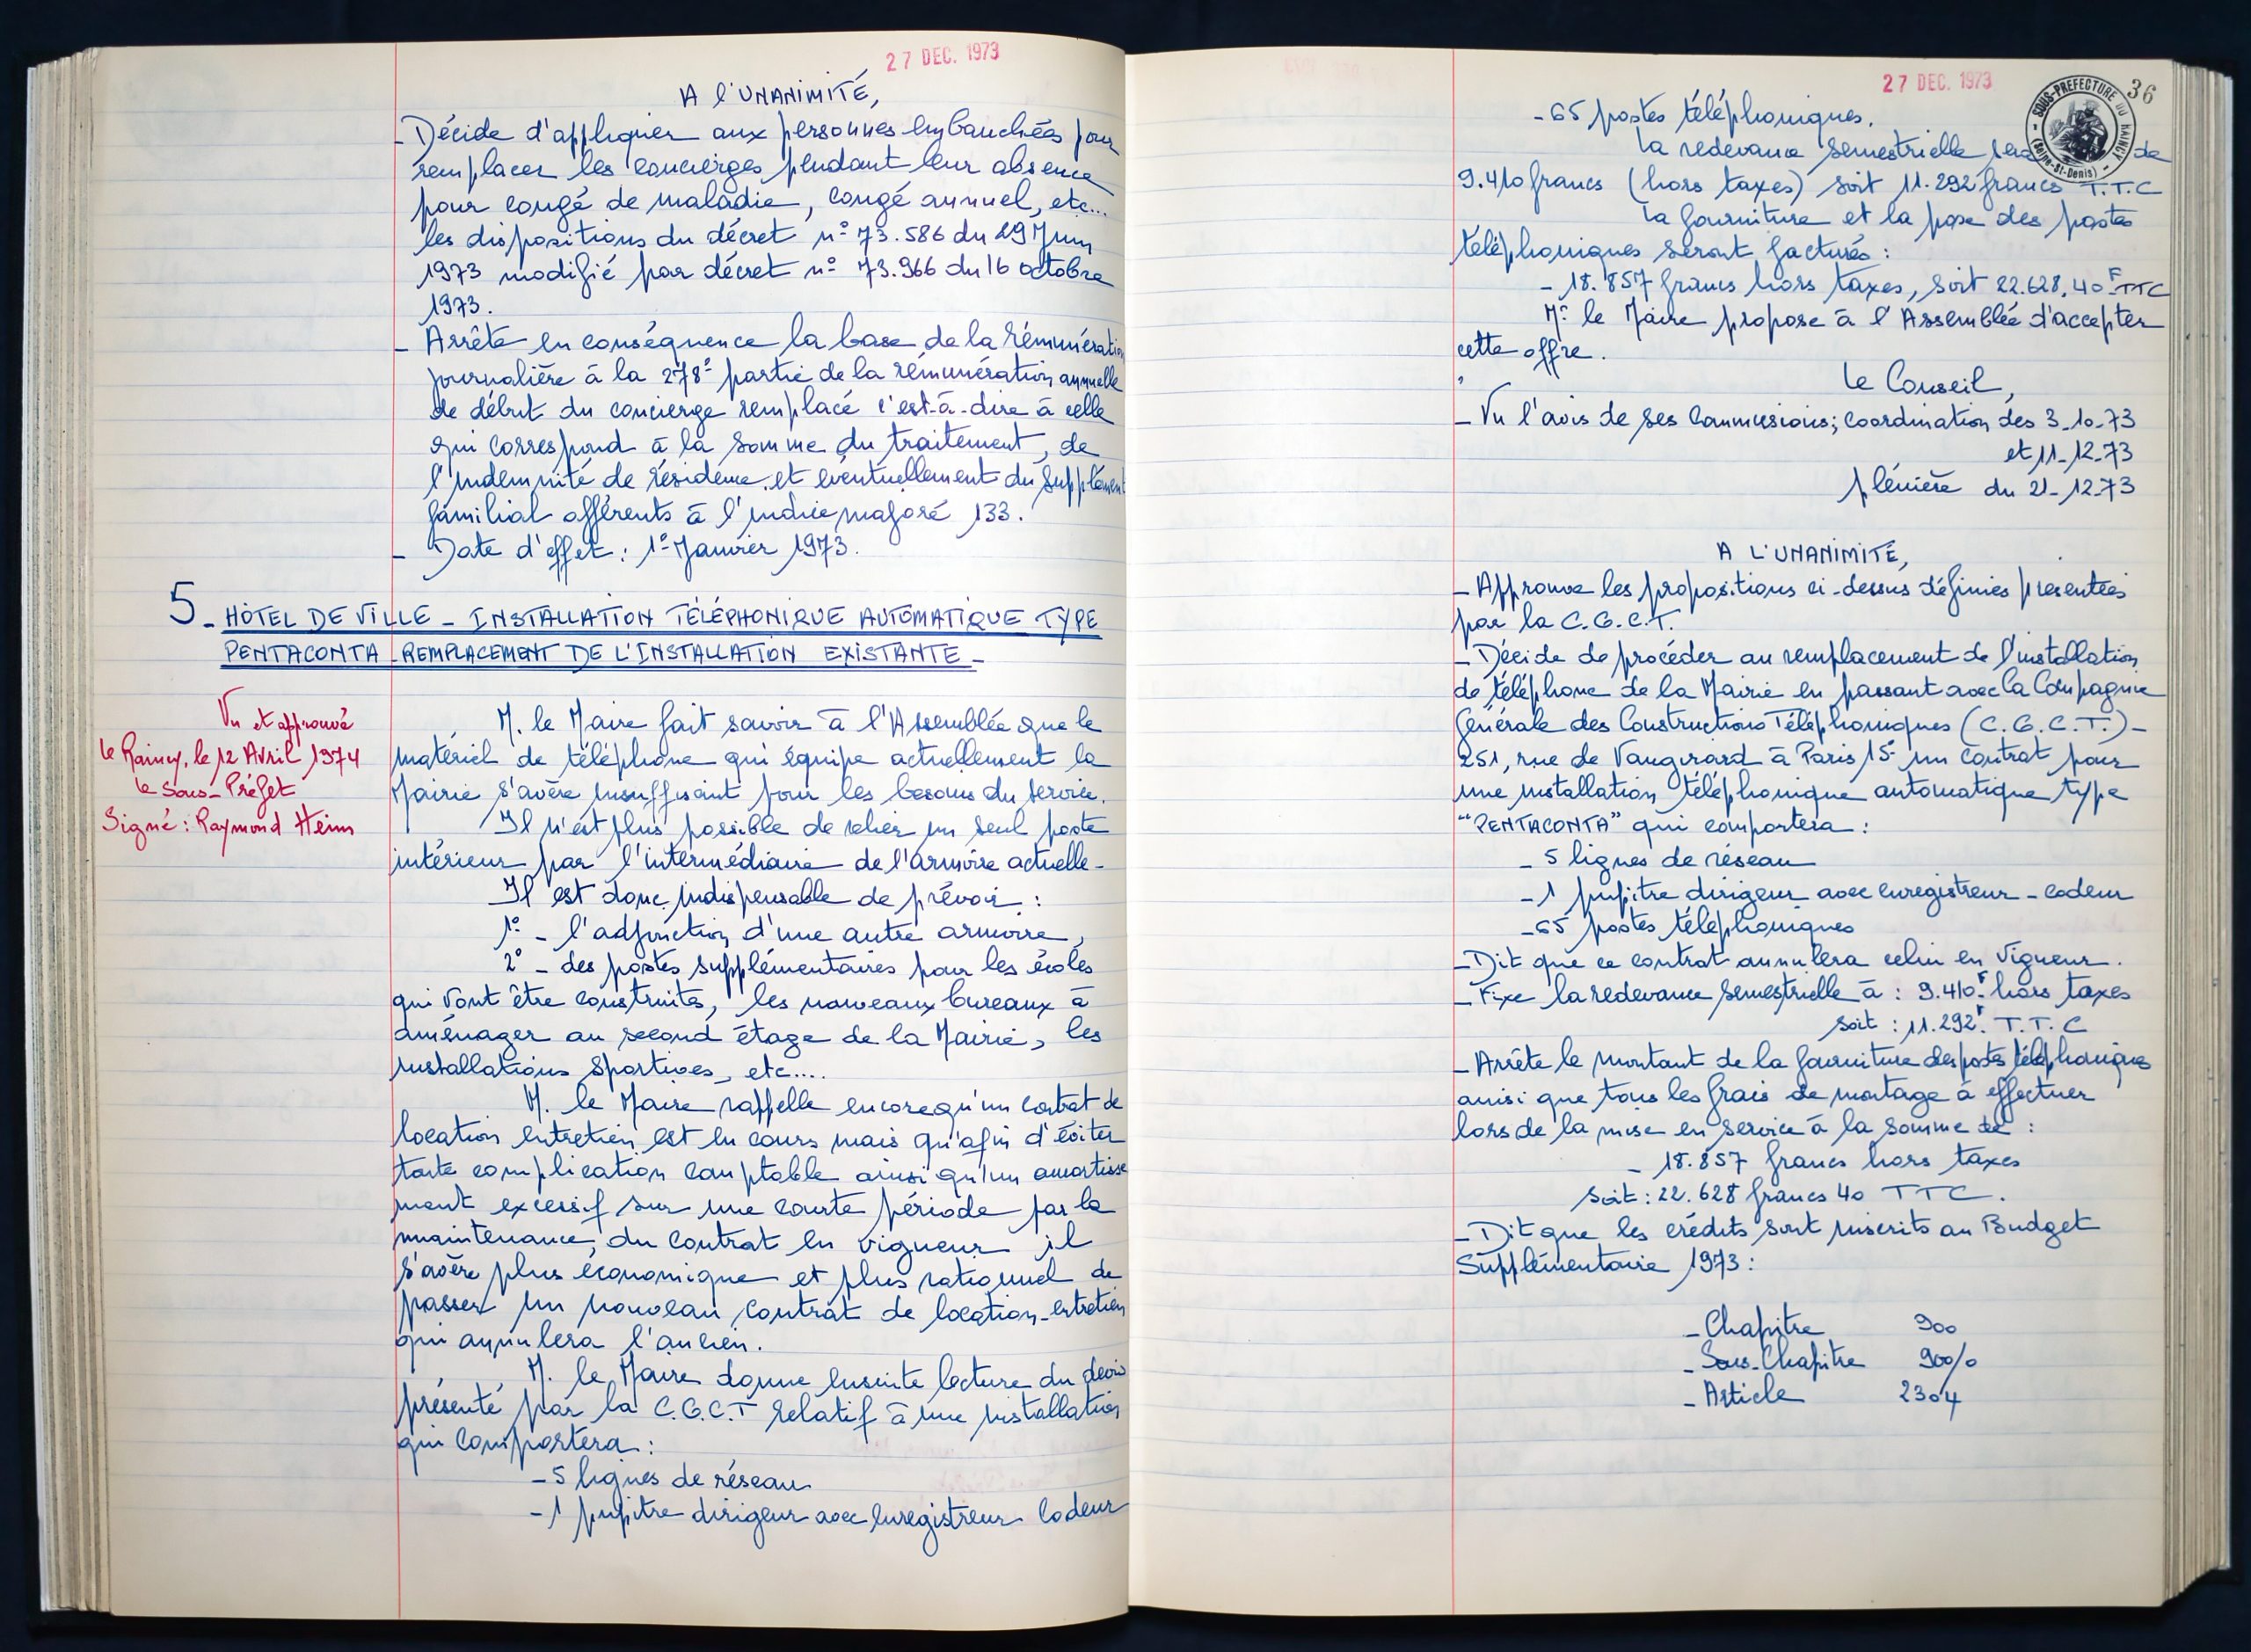 27 DEC. 1973
A l'UNANIMITÉ,
- Décide d'appliquer aux personnes embauchées pour
remplacer les concierges pendant leur absence
pour congé de maladie, congé annuel, etc...
les dispositions du décret n° 73.586 du 29 Juin
1973 modifié par décret n° 73.966 du 16 octobre
1973.
- Arrête en conséquence la base de la rémunération
journalière à la 278e partie de la rémunération annuelle
de début du concierge remplacé c'est-à-dire à celle
qui correspond à la somme du traitement, de
l'indemnité de résidence et éventuellement du supplément
familial afférents à l'indice majoré 133.
- Date d'effet : 1er Janvier 1973.
5 - HÔTEL DE VILLE - INSTALLATION TÉLÉPHONIQUE AUTOMATIQUE TYPE
PENTACONTA - REMPLACEMENT DE L'INSTALLATION EXISTANTE -
Vu et approuvé
le Raincy, le 12 Avril 1974
le Sous-Préfet
Signé : Raymond Heim
M. le Maire fait savoir à l'Assemblée que le
matériel de téléphone qui équipe actuellement la
Mairie s'avère insuffisant pour les besoins du service.
Il n'est plus possible de relier un seul poste
intérieur par l'intermédiaire de l'armoire actuelle -
Il est donc indispensable de prévoir :
1° - l'adjonction d'une autre armoire,
2° - des postes supplémentaires pour les écoles
qui vont être construites, les nouveaux bureaux à
aménager au second étage de la Mairie, les
installations sportives, etc....
M. le Maire rappelle encore qu'un contrat de
location entretien est en cours mais qu'afin d'éviter
toute complication comptable ainsi qu'un amortisse
ment excessif sur une courte période par la
maintenance, du contrat en vigueur il
s'avère plus économique et plus rationnel de
passer un nouveau contrat de location-entretien
qui annulera l'ancien.
M. le Maire donne ensuite lecture du devis
présenté par la C.G.C.T relatif à une installation
qui comportera :
- 5 lignes de réseau
- 1 pupitre dirigeur avec enregistreur codeur
27 DEC. 1973
36
SOUS-PREFECTURE DU RAINCY
(Seine-St-Denis)
- 65 postes téléphoniques.
la redevance semestrielle sera de
9.410 francs (hors taxes) soit 11.292 francs T.T.C
la fourniture et la pose des postes
téléphoniques seront facturés :
- 18.857 francs hors taxes, soit 22.628,40 F TTC
Mr le Maire propose à l'Assemblée d'accepter
cette offre.
le Conseil,
- Vu l'avis de ses Commissions; coordination des 3-10-73
et 11-12-73
plénière du 21-12-73
A L'UNANIMITÉ,
- Approuve les propositions ci-dessus définies présentées
par la C.G.C.T.
- Décide de procéder au remplacement de l'installation
de téléphone de la Mairie en passant avec la Compagnie
Générale des Constructions Téléphoniques (C.G.C.T.) -
251, rue de Vaugirard à Paris 15e un contrat pour
une installation téléphonique automatique type
"PENTACONTA" qui comportera :
- 5 lignes de réseau
- 1 pupitre dirigeur avec enregistreur - codeur
- 65 postes téléphoniques
- Dit que ce contrat annulera celui en vigueur.
- Fixe la redevance semestrielle à : 9.410F hors taxes
soit : 11.292F T.T.C
- Arrête le montant de la fourniture des postes téléphoniques
ainsi que tous les frais de montage à effectuer
lors de la mise en service à la somme de :
- 18.857 francs hors taxes
soit : 22.628 francs 40 TTC.
- Dit que les crédits sont inscrits au Budget
Supplémentaire 1973 :
- Chapitre 900
- Sous-Chapitre 900/0
- Article 2304